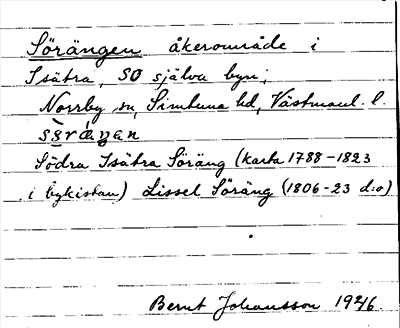 Sörängen åkerområde i
Isätra, SO själva byn;
Norrby sn, Simtuna hd, Västmanl. l.
Södra Isätra Söräng (karta 1788-1823
i bykistan) Lissel Söräng (1806-23 d:o)
Bernt Johansson 1926.